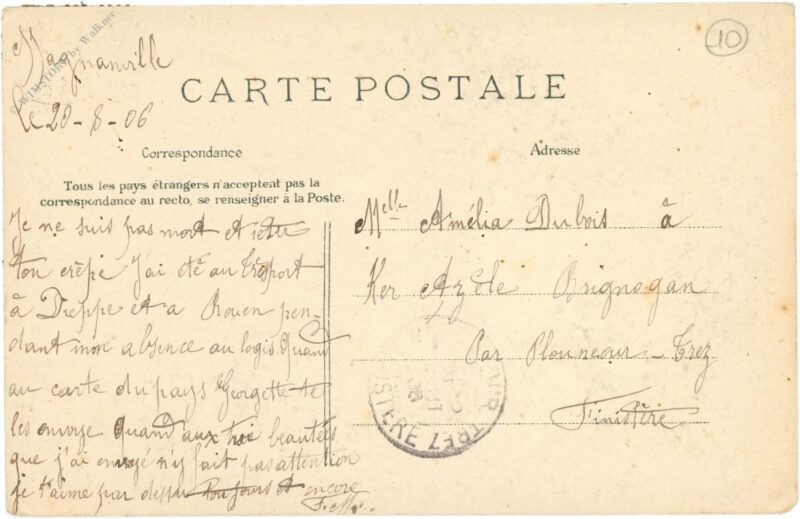 Magnanville
le 20-8-06
WINISTORE by Walkner
10
CARTE POSTALE
Correspondance
Adresse
Tous les pays étrangers n'acceptent pas la
correspondance au recto, se renseigner à la Poste.
Je ne suis pas mort et
ton crêpe J'ai été au Tréport
à Dieppe et a Rouen pen-
dant mon absence au logis Quand
au carte du pays Georgette te
les envoye Quand aux troi beautées
que j'ai envoyé n'y fait pas attention
je t'aime par dessu toujours et encore
Melle Amélia Dubois à
Ker Azèle Brignogan
Par Plouneour-Trez
Finistère
UR TREZ
ISTERE